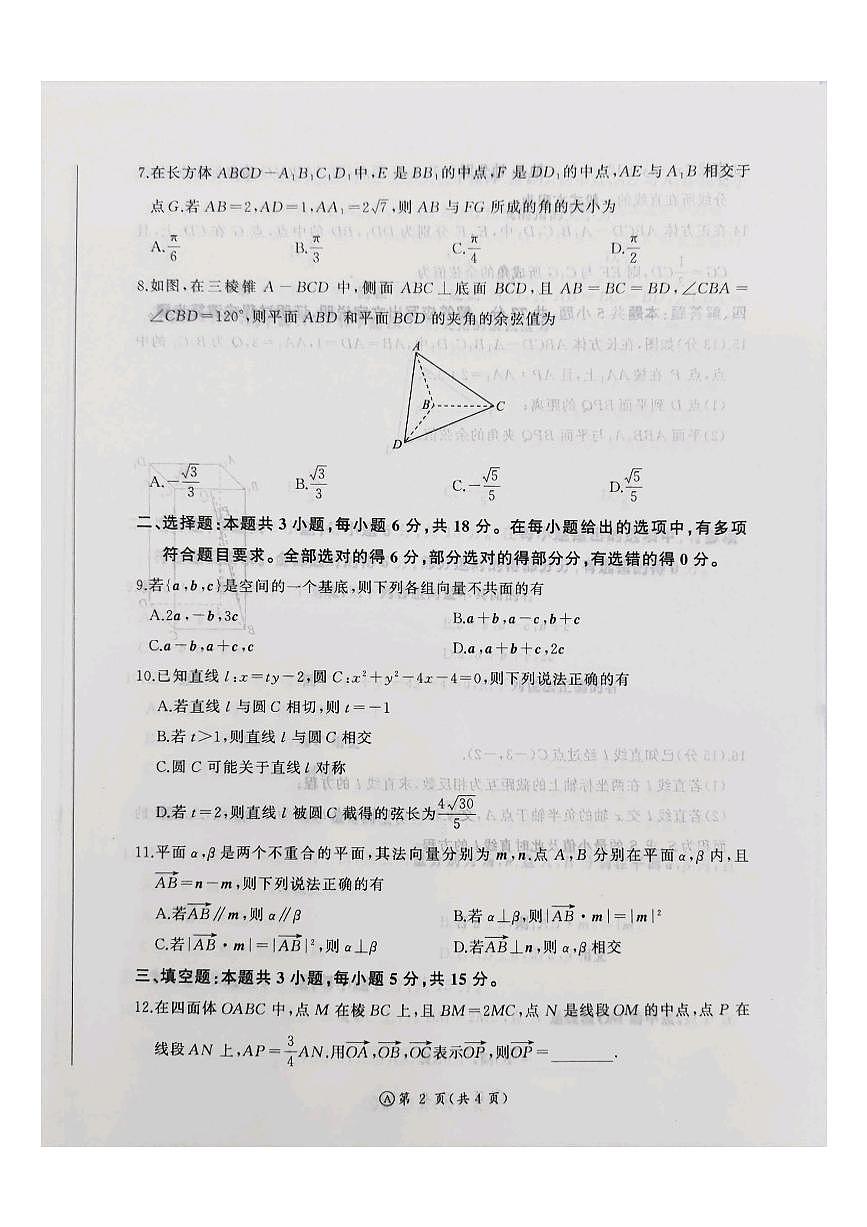 7.在长方体 ABCD-A₁B₁C₁D₁中,E 是 BB₁的中点,F 是 DD₁的中点,AE 与 A₁B 相交于
点 G.若 AB=2,AD=1,AA₁=2√7,则 AB 与 FG 所成的角的大小为
A.π/6 B.π/3 C.π/4 D.π/2
8.如图,在三棱锥 A-BCD 中,侧面 ABC⊥底面 BCD,且 AB=BC=BD,∠CBA=
∠CBD=120°,则平面 ABD 和平面 BCD 的夹角的余弦值为
A
B
C
D
A.-√3/3 B.√3/3 C.-√5/5 D.√5/5
二、选择题:本题共 3 小题,每小题 6 分,共 18 分。在每小题给出的选项中,有多项
符合题目要求。全部选对的得 6 分,部分选对的得部分分,有选错的得 0 分。
9.若{a,b,c}是空间的一个基底,则下列各组向量不共面的有
A.2a,-b,3c B.a+b,a-c,b+c
C.a-b,a+c,c D.a,a+b+c,2c
10.已知直线 l:x=ty-2,圆 C:x²+y²-4x-4=0,则下列说法正确的有
A.若直线 l 与圆 C 相切,则 t=-1
B.若 t>1,则直线 l 与圆 C 相交
C.圆 C 可能关于直线 l 对称
D.若 t=2,则直线 l 被圆 C 截得的弦长为4√30/5
11.平面 α,β 是两个不重合的平面,其法向量分别为 m,n.点 A,B 分别在平面 α,β 内,且
AB→=n-m,则下列说法正确的有
A.若AB→∥m,则 α∥β B.若 α⊥β,则|AB→·m|=|m|²
C.若|AB→·m|=|AB→|²,则 α⊥β D.若AB→⊥n,则 α,β 相交
三、填空题:本题共 3 小题,每小题 5 分,共 15 分。
12.在四面体 OABC 中,点 M 在棱 BC 上,且 BM=2MC,点 N 是线段 OM 的中点,点 P 在
线段 AN 上,AP=3/4AN.用OA→,OB→,OC→表示OP→,则OP→=________.
Ⓐ第 2 页(共 4 页)